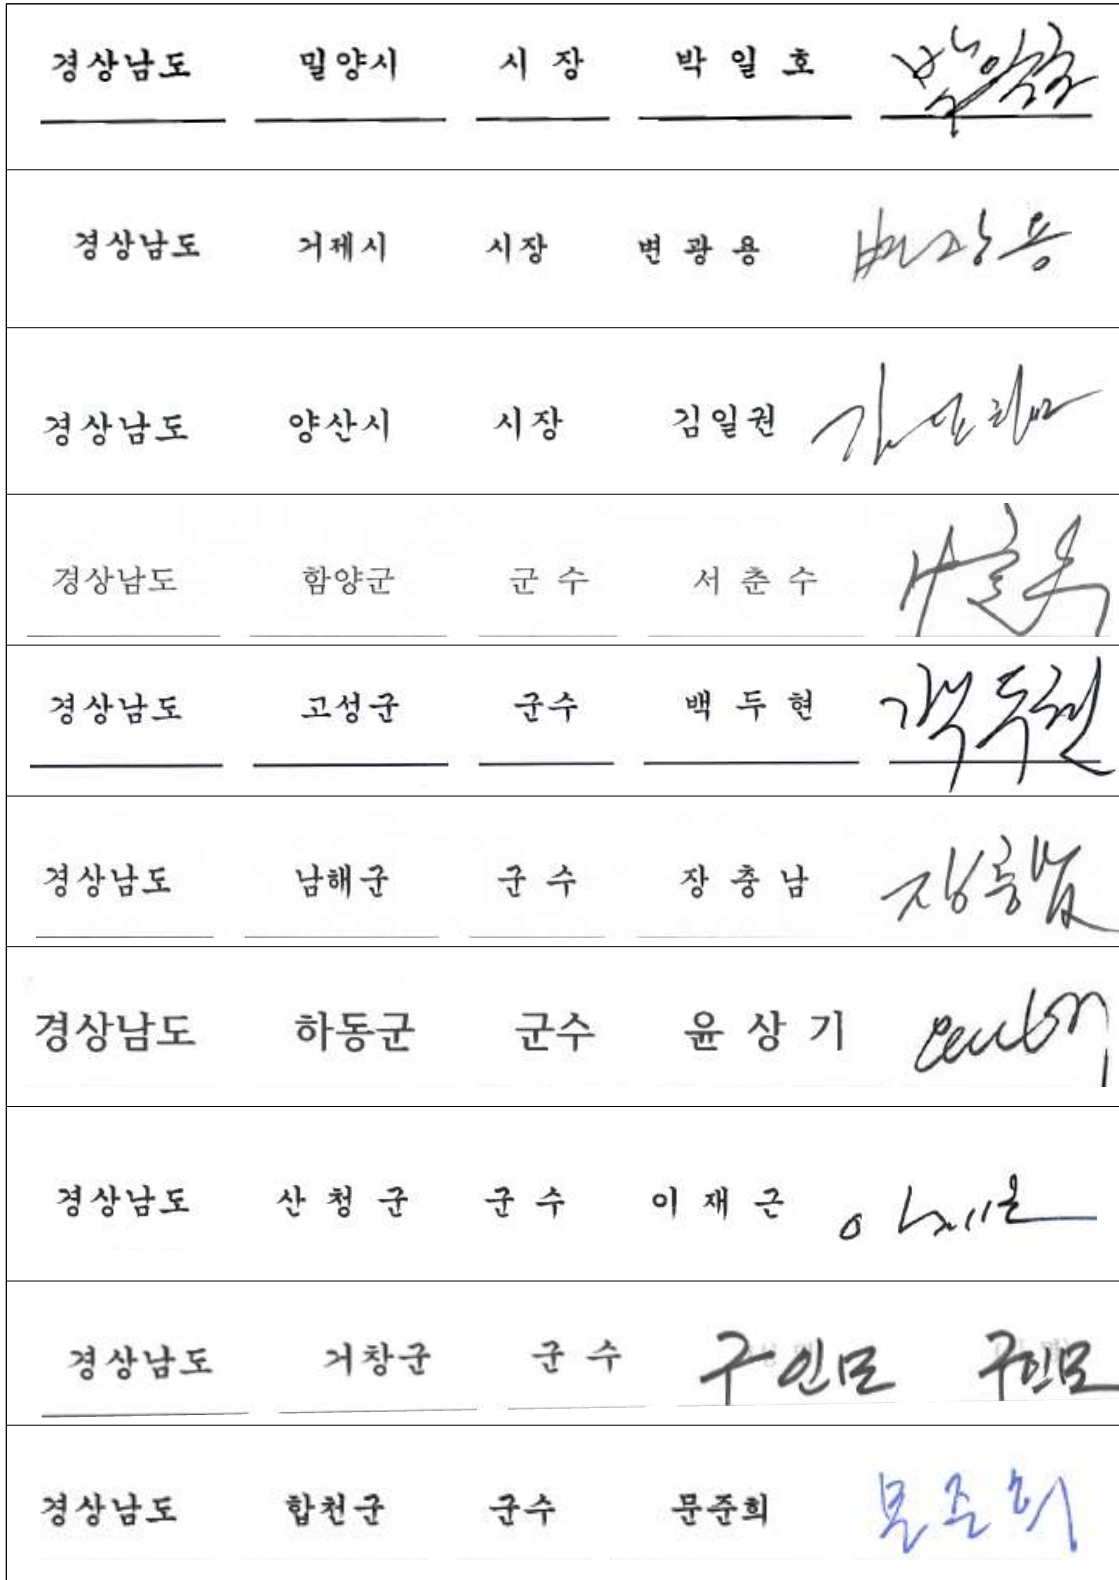 경상남도 밀양시 시 장 박 일 호
경상남도 거제시 시장 변 광 용
경상남도 양산시 시장 김일권
경상남도 함양군 군 수 서 춘 수
경상남도 고성군 군수 백 두 현 백두현
경상남도 남해군 군 수 장 충 남 장충남
경상남도 하동군 군수 윤 상 기
경상남도 산 청 군 군 수 이 재 근
경상남도 거창군 군 수 구인모 구인모
경상남도 합천군 군수 문준희 문준희